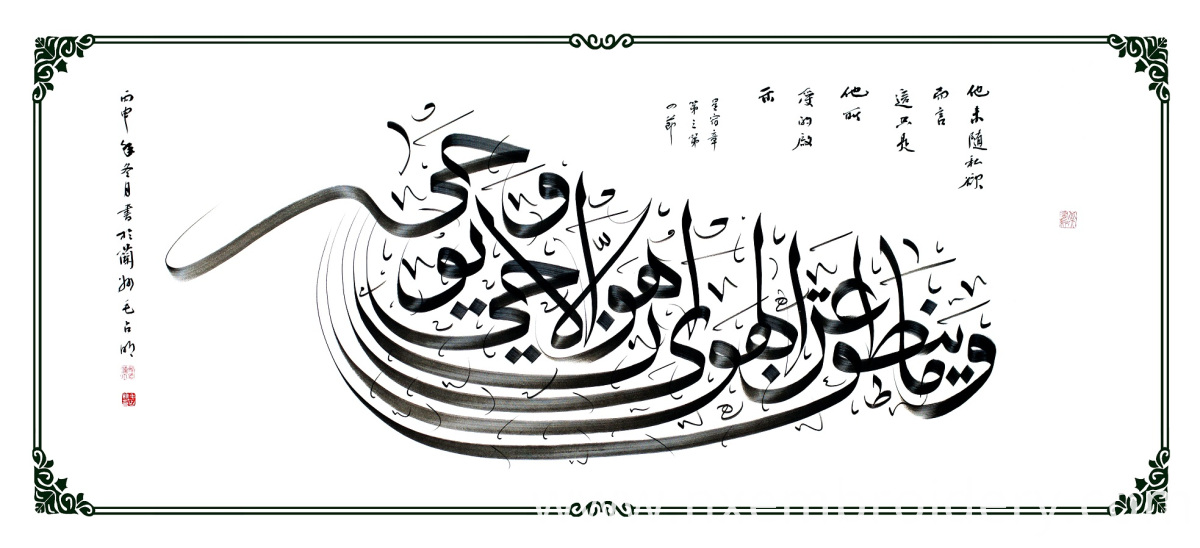 وما ينطق عن الهوى إن هو إلا وحي يوحى
他未隨私欲
而言
這只是
他所
受的啟
示
星宿章
第三第
四節
丙申年冬月書於蘭州毛占明